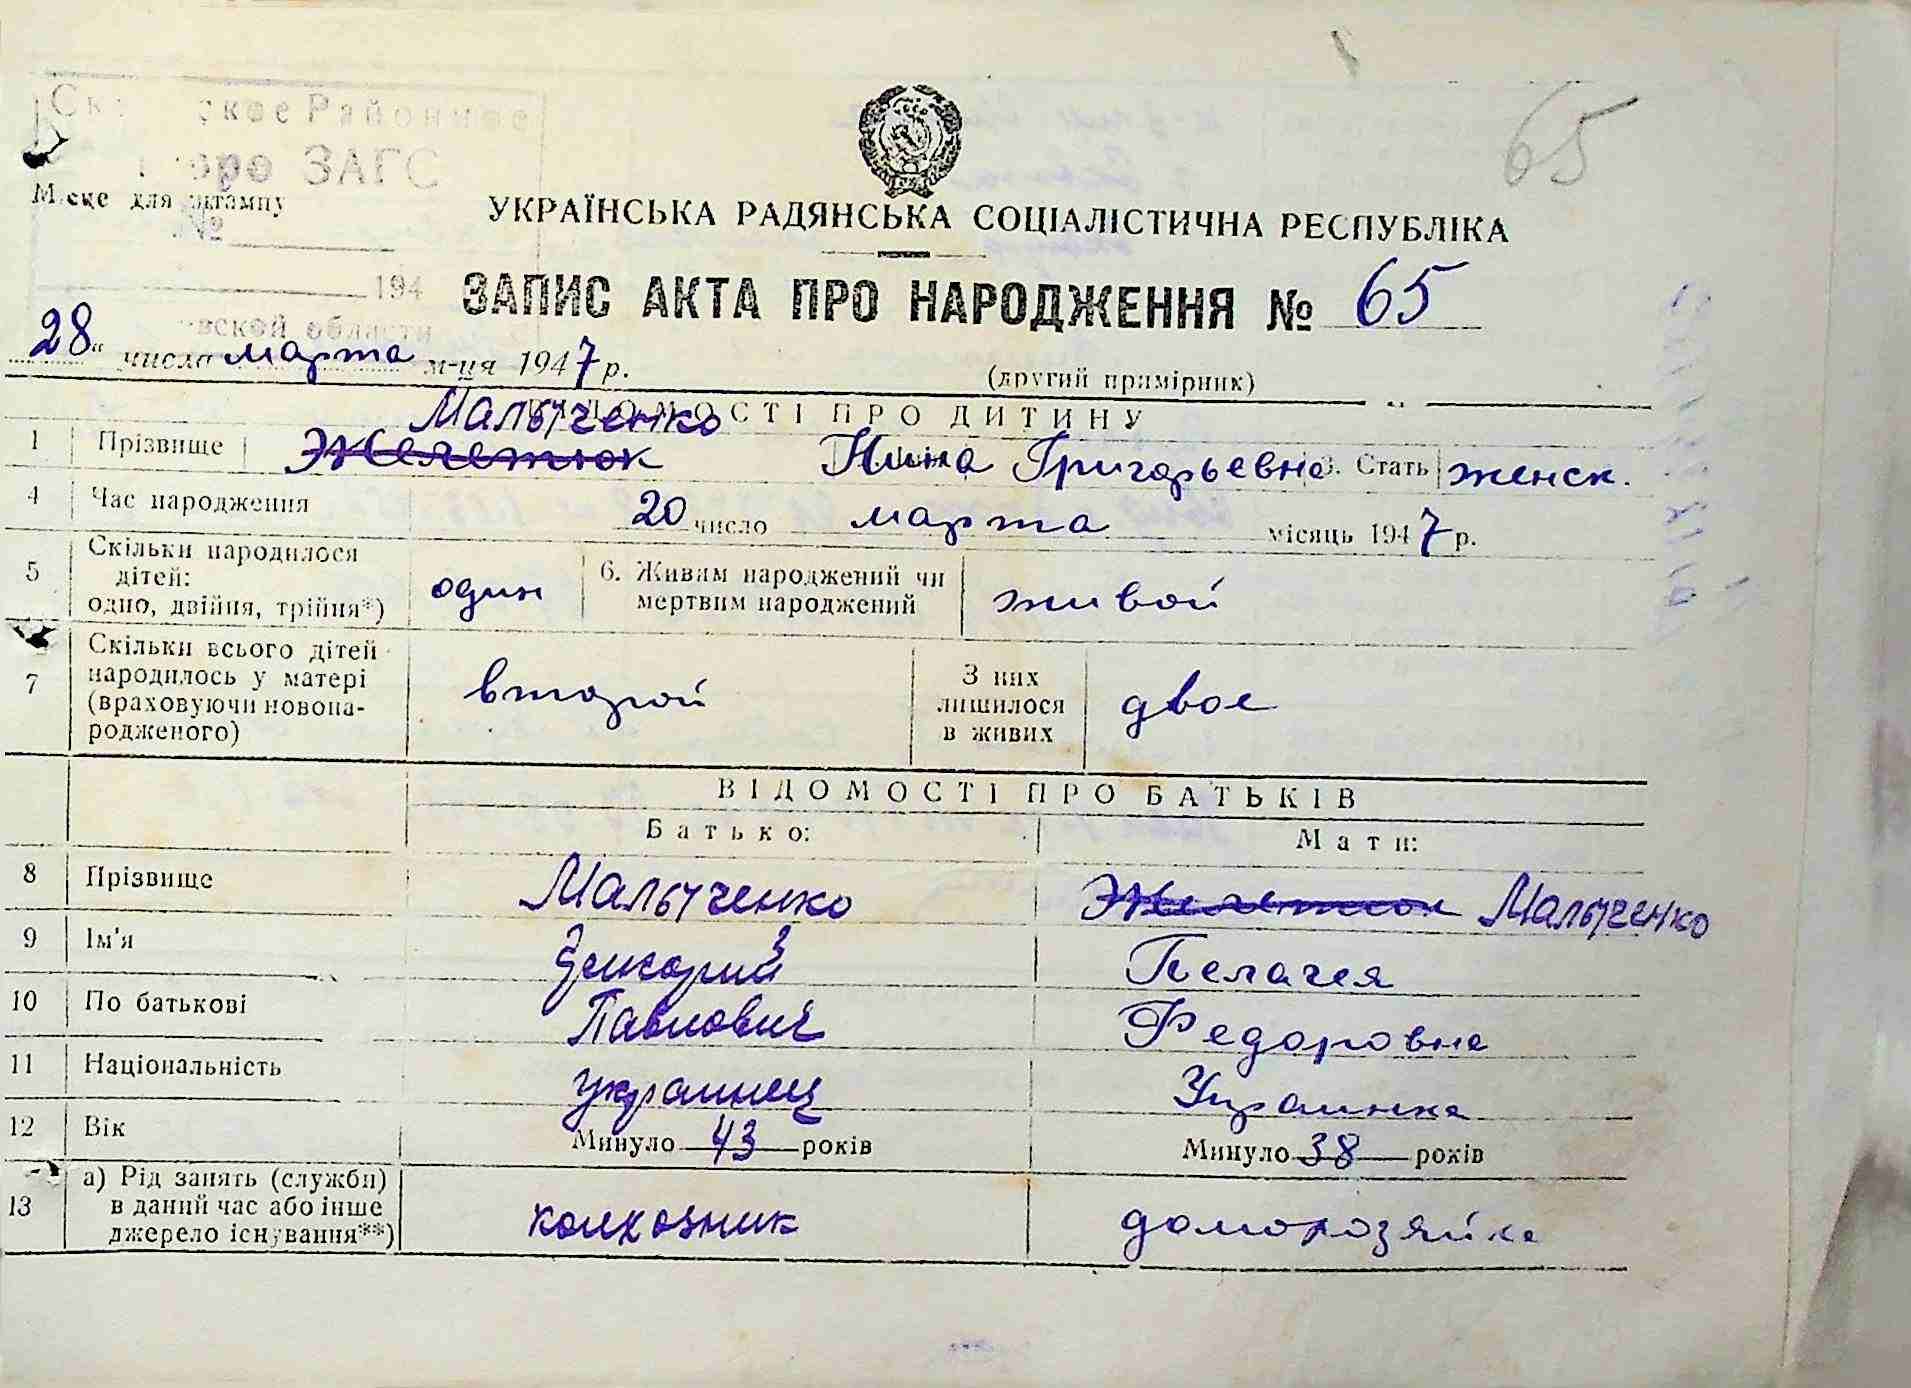 65
Районное
ЗАГС
Місце для штампу
№
194
УКРАЇНСЬКА РАДЯНСЬКА СОЦІАЛІСТИЧНА РЕСПУБЛІКА
ЗАПИС АКТА ПРО НАРОДЖЕННЯ № 65
области
28 " числа марта м-ця 1947 р.
(другий примірник)
ВІДОМОСТІ ПРО ДИТИНУ
Малыченко
1 Прізвище Нина Григорьевна 3. Стать женск.
4 Час народження 20 число марта місяць 1947 р.
5 Скільки народилося дітей: одно, двійня, трійня*) один 6. Живим народжений чи мертвим народжений живой
7 Скільки всього дітей народилось у матері (враховуючи новонародженого) второй З них лишилося в живих двое
ВІДОМОСТІ ПРО БАТЬКІВ
Батько: Мати:
8 Прізвище Малыченко Малыченко
9 Ім'я Григорий Пелагея
10 По батькові Павлович Федоровна
11 Національність украинец Украинка
12 Вік Минуло 43 років Минуло 38 років
13 а) Рід занять (служби) в даний час або інше джерело існування**) колхозник домохозяйка